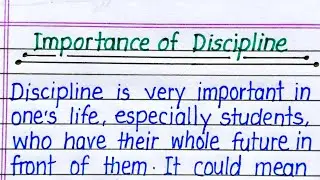 Importance of Discipline
Discipline is very important in
one's life, especially students,
who have their whole future in
front of them. It could mean